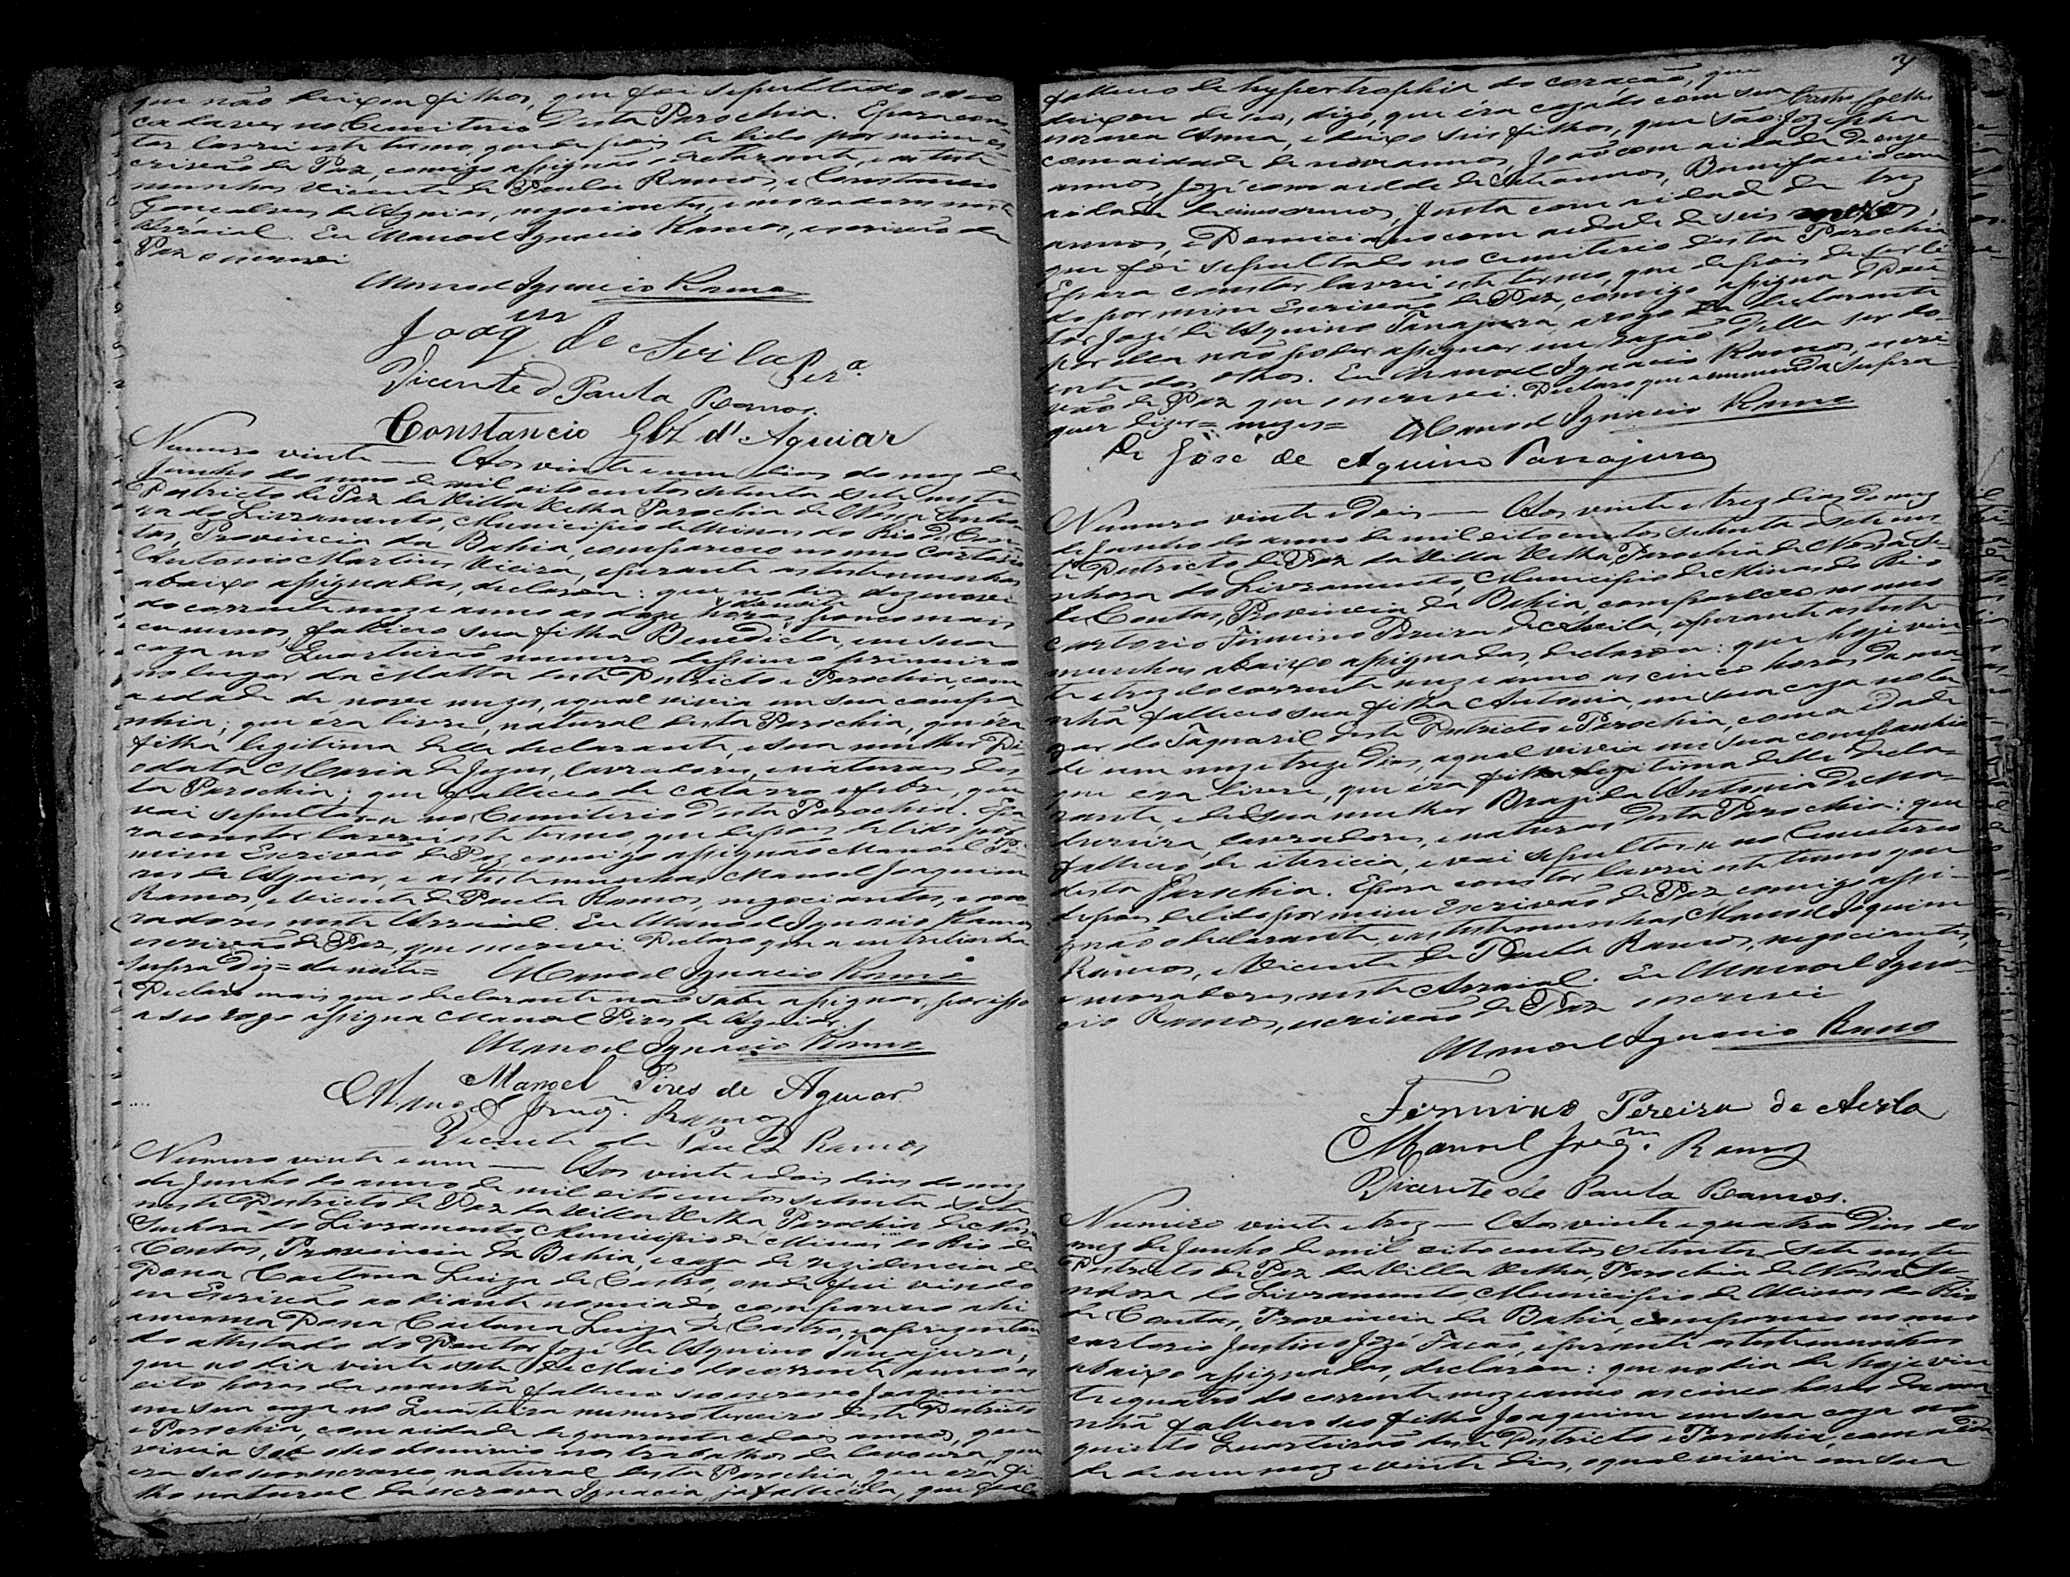 que não deixou filhos, que foi sepultado o seo
cadaver no Cemiterio desta Parochia. E para cons-
tar lavrei este termo, que depois de lido por mim es-
crivão de Paz, comigo assignão o declarante, e as teste-
munhas Vicente de Paula Ramos, e Constancio
Gonçalves de Aguiar, negociantes, e moradores neste
Arraial. Eu Manoel Ignacio Ramos, escrivão de
Paz o escrevi
Manoel Ignacio Ramos
Joaqm de Avila Perª
Vicente d Paula Ramos.
Constancio Glz d'Aguiar
Numero vinte — Aos vinte e um dias do mez de
Junho do anno de mil oito centos setenta e sete neste
Districto de Paz da Villa Velha Parochia de Nossa Senho-
ra do Livramento, Municipio de Minas do Rio de Con-
tas, Provincia da Bahia, compareceo no meo Cartorio
Antonio Martins Vieira, e perante as testemunhas
abaixo assignadas, declarou: que no dia dezenove
do corrente mez e anno as doze horas da noite, pouco mais
ou menos, falleceo sua filha Benedicta, em sua
caza no Quarteirão numero decimo primeiro
no lugar da Matta deste Districto e Parochia, com
a idade de nove mezes, a qual vivia em sua compa-
nhia; que era livre, natural desta Parochia, que éra
filha legitima delle declarante, e sua mulher De-
odata Maria de Jezus, lavradores, e naturaes des-
ta Parochia; que falleceo de catarro e febre, que
vai sepultar-se no Cemiterio desta Parochia. E pa-
ra constar lavrei este termo, que depois de lido por
mim Escrivão de Paz comigo assignão Manoel Pi-
res de Aguiar, e as testemunhas Manoel Joaquim
Ramos, e Vicente de Paula Ramos, negociantes, e mo-
radores neste Arraial. Eu Manoel Ignacio Ramos
escrivão de Paz, que escrevi. Declaro que a entrelinha
supra diz = da noite = Manoel Ignacio Ramos
Declaro mais que o declarante não sabe assignar, por isso
a seo rogo assigna Manoel Pires de Aguiar.
Manoel Ignacio Ramos
Manoel Pires de Aguiar
Manoel Joaqm. Ramos
Vicente de Paula Ramos
Numero vinte e um — Aos vinte e dois dias do mez
de Junho do anno de mil oito centos setenta e sete
neste Districto de Paz da Villa Velha Parochia de Nossa
Senhora do Livramento, Municipio de Minas do Rio de
Contas, Provincia da Bahia, e caza de rezidencia de
Dona Caetana Luiza de Castro, onde fui vindo
eu Escrivão ao diante nomeado, compareceo ahi
a mesma Dona Caetana Luiza de Castro, e aprezentan-
do attestado do Doutor Jozé de Aquino Tanajura,
que no dia vinte e sete de Maio do corrente anno as
oito horas da manhã falleceo seo escravo Joaquim
em sua caza no Quarteirão numero terceiro deste Districto
e Parochia, com a idade de quarenta e dois annos, que
vivia sob seo dominio nos trabalhos da lavoura, que
era seo escravo natural desta Parochia, que era fi-
lho natural da escrava Ignacia, ja fallecida, que fal-
falleceo de hypertrophia do coração, que
deixou de seo, digo, que éra cazado com sua Castro Coelho
escrava Anna, e deixou seis filhos, que são: Jozepha
com a idade de nove annos, João com a idade de onze
annos, Jozé com a idade de sete annos, Bonifacio com
a idade de cinco annos, Justa com a idade de trez
annos, e Domiciano com a idade de seis mezes,
que foi sepultado no cemiterio desta Parochia
E para constar lavrei este termo, que depois de ser li-
do por mim Escrivão de Paz, comigo assigna o Dou-
tor Jozé de Aquino Tanajura, a rogo da declarante
por ella não poder assignar em razão della ser do-
ente dos olhos. Eu Manoel Ignacio Ramos, escri-
vão de Paz que escrevi. Declaro que a emmenda supra
quer dizer = mezes = Manoel Ignacio Ramos
Dr José de Aquino Tanajura
Numero vinte e dois — Aos vinte e trez dias do mez
de Junho do anno de mil oito centos setenta e sete nes-
te Districto de Paz da Villa Velha Parochia de Nossa Se-
nhora do Livramento, Municipio de Minas do Rio
de Contas, Provincia da Bahia, compareceo no meo
cartorio Firmino Pereira de Avila, e perante as teste-
munhas abaixo assignadas, declarou: que hoje vin-
te e trez do corrente mez e anno as cinco horas da ma-
nhã falleceo sua filha Antonia, em sua caza no lu-
gar do Taquaril deste Districto e Parochia, com a idade
de um mez e treze dias, a qual vivia em sua companhia
que era livre, que éra filha legitima delle decla-
rante, e de sua mulher Brazida Antonia de Ma-
dureira lavradores, e naturaes desta Parochia: que
falleceo de itericia, e vai sepultar-se no Cemiterio
desta Parochia. E para constar lavrei este termo que
depois de lido por mim Escrivão de Paz, comigo assi-
gnão o declarante, e as testemunhas Manoel Joaquim
Ramos, e Vicente de Paula Ramos, negociantes,
e moradores neste Arraial. Eu Manoel Igna-
cio Ramos, escrivão de Paz escrevi
Manoel Ignacio Ramos
Firmino Pereira de Avila
Manoel Joaqm. Ramos
Vicente de Paula Ramos.
Numero vinte e trez — Aos vinte e quatro dias do
mez de Junho de mil oito centos setenta e sete neste
Districto de Paz da Villa Velha, Parochia de Nossa Se-
nhora do Livramento, Municipio de Minas do Rio
de Contas, Provincia da Bahia, compareceo no meo
cartorio Justino Jozé Facão, e perante as testemunhas
abaixo assignadas, declarou: que no dia de hoje vin-
te e quatro do corrente mez e anno as cinco horas da ma-
nhã falleceo seo filho Joaquim em sua caza no
quinto Quarteirão deste Districto e Parochia, com a ida-
de de um mez e vinte dias, o qual vivia em sua